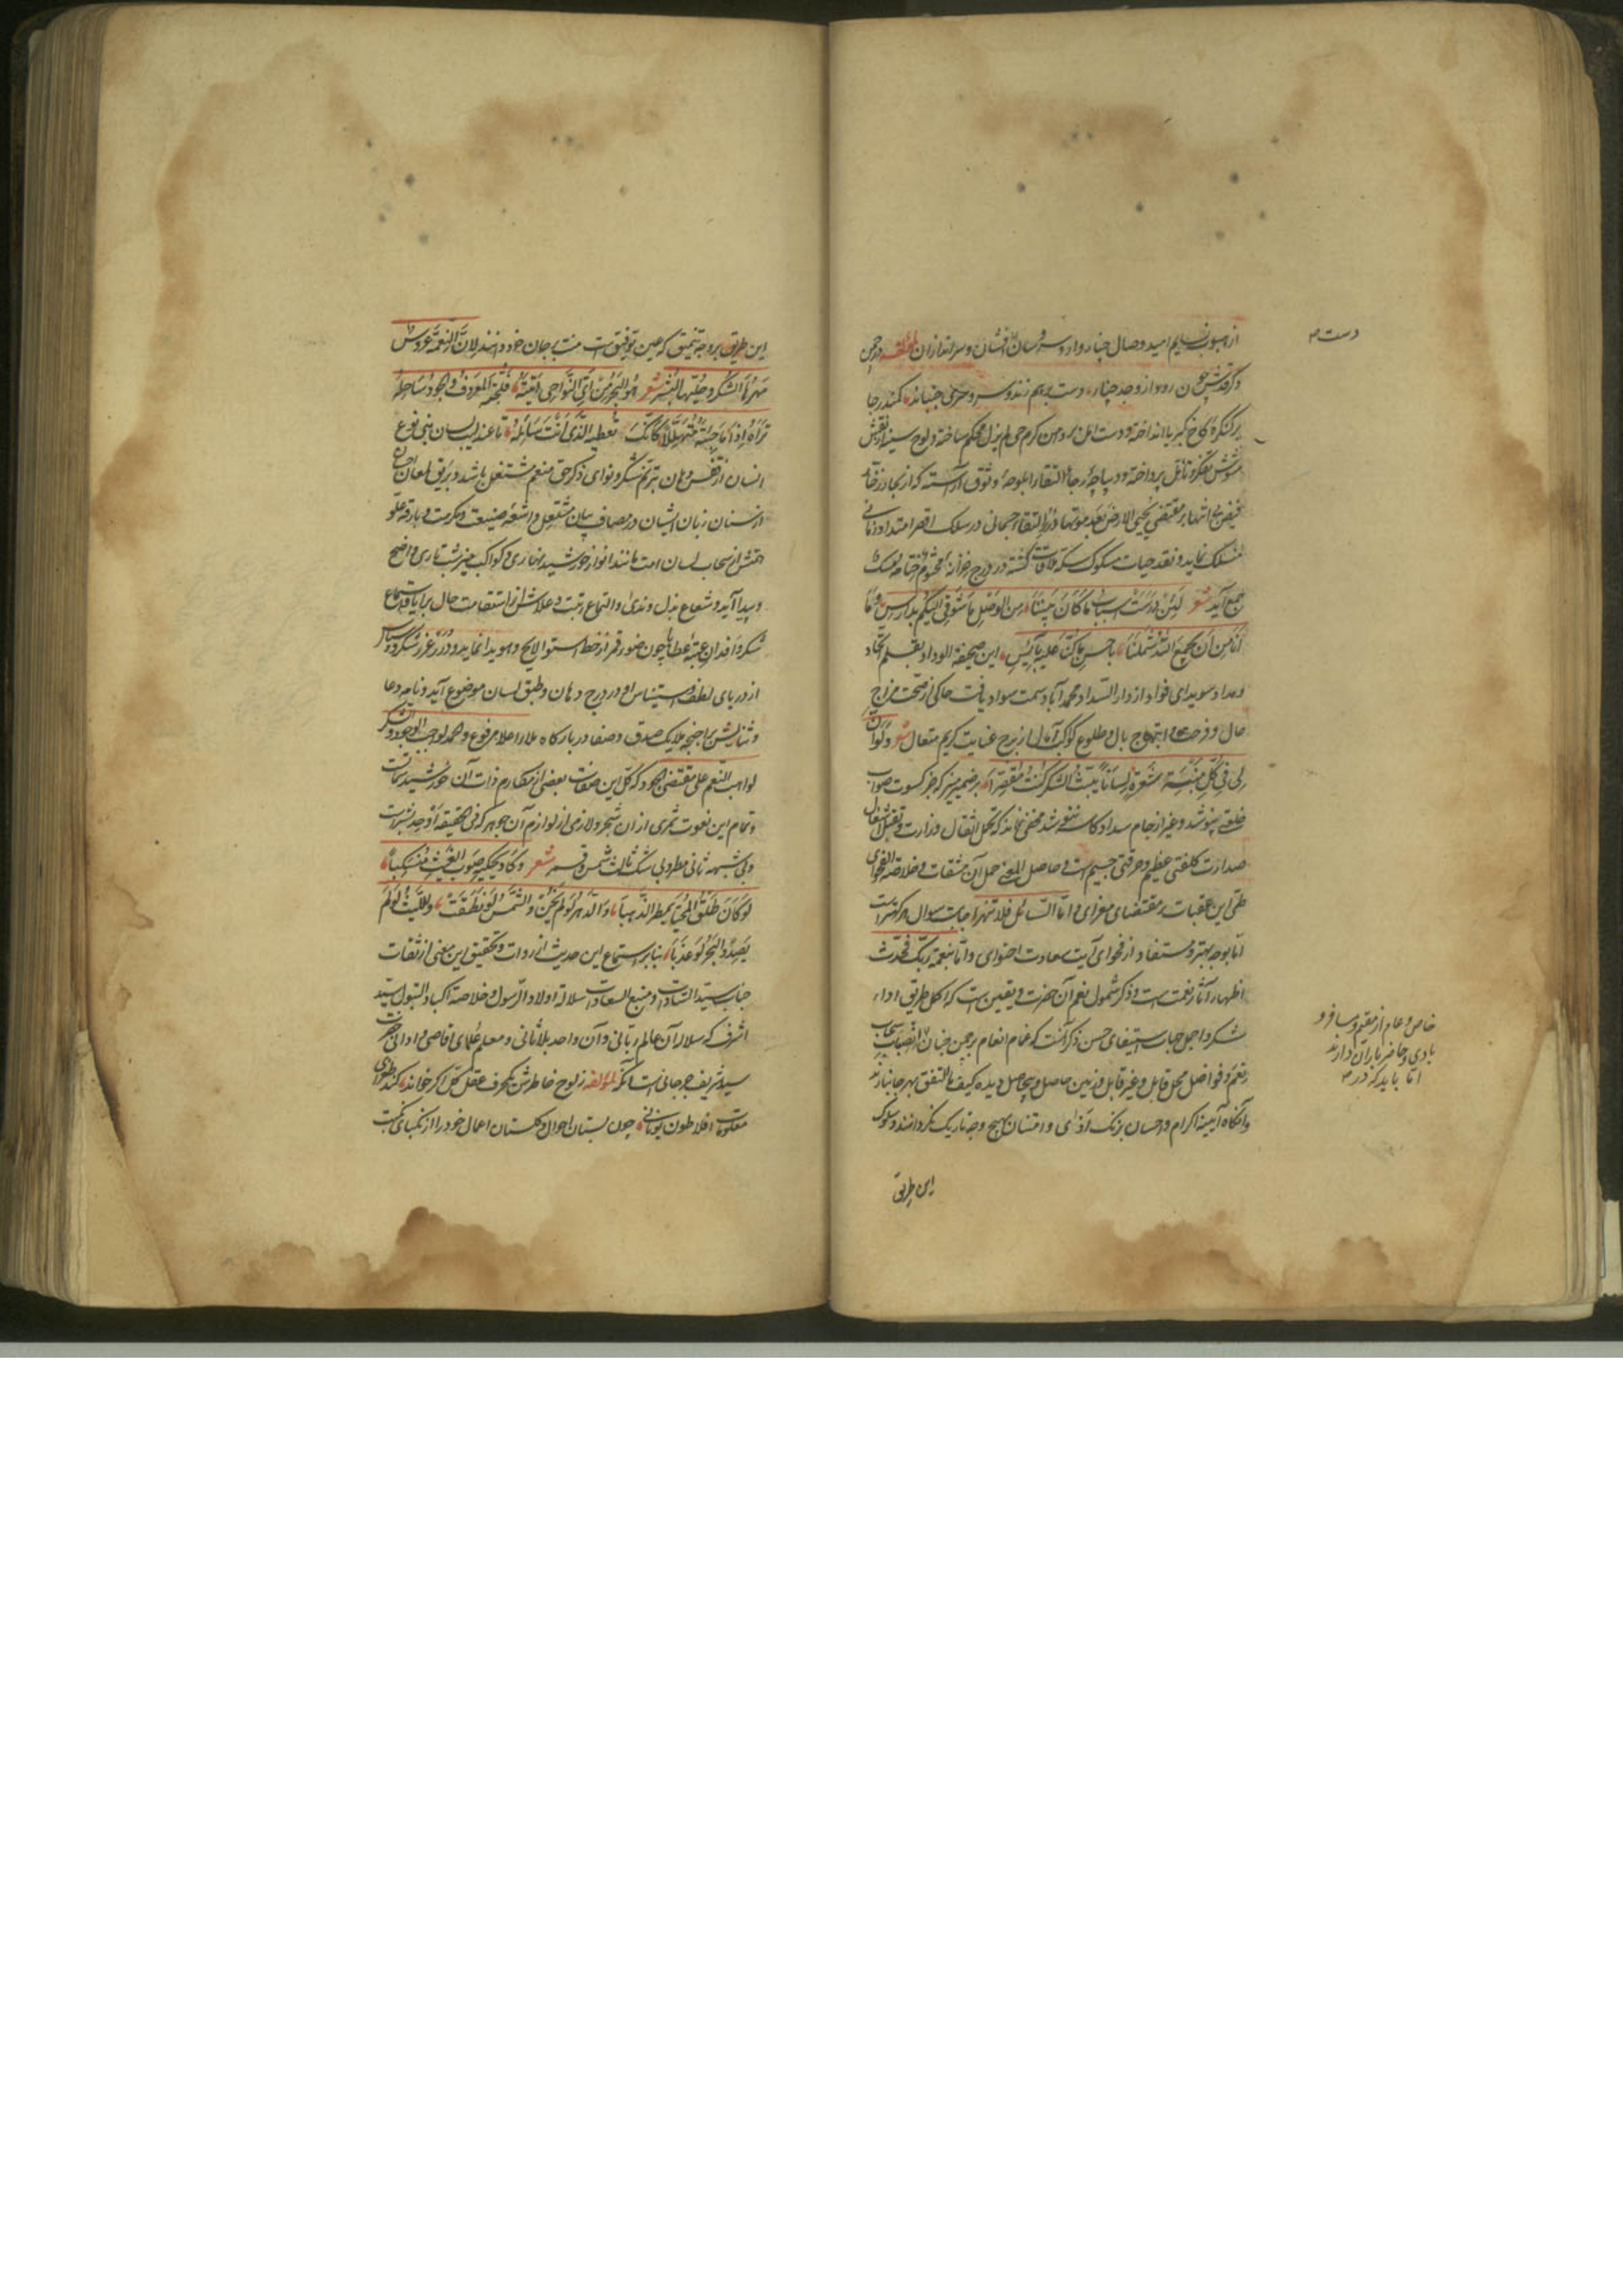 از هبوب نسایم امید وصال چناروار و سرو سان دست افشان و سراندازان لمؤلفه در چمن
دست برهم زند و سرو سری جنباند کمند رجا
بر کنگره کاخ کبریا انداخته و دست امل بر دامن کرم حی لم یزل محکم ساخته و لوح سینه از نقوش
مشوش تفکر و تأمل پرداخته و دیباچه رجاء التقا را بلوحه وثوق آراسته که از بحار زخار
فیض بی انتها بر مقتضی یحیی الارض بعد موتها در التقاء جسمانی در سلک اقصر امتداد زمانی
منسلک نماید و نقد حیات مسکوک سکه ملاقات گشته در درج خزانه مختوم ختامه مسک
جمع آید شعر لئن درست اسباب ما کان بیننا من الوصل ما شوقی الیکم بدارس و ما
انا من ان یجمع الله شملنا باحسن ما کنا علیه بآیس این صحیفة الوداد بقلم اتحاد
و مداد سویدای فواد از دار السداد محمدآباد سمت سواد یافت حاکی از صحت مزاج
حال و فرحت و ابتهاج بال و طلوع کوکب آمال از برج عنایت کریم متعال شعر ولو ان
لی فی کل منبت شعرة لسانا یبث الشکر کنت مقصرا بر ضمیر منیر که جز کسوت صواب
خلعتی نپوشد و غیر از جام سداد کاسی ننوشد مخفی نماند که تحمل اثقال وزارت و تقبل اشغال
صدارت کلفتی عظیم و حرقتی جسیم است و حاصل المعنی حمل آن مشقات و خلاصة الفحوای
طی این عقبات بمقتضای مغزای و اما السائل فلا تنهر اجابت سوال هر کهتر است
اما بوجه بهتر و مستفاد از فحوای آیت سعادت احتوای و اما بنعمة ربک فحدث
اظهار آثار نعمت است و ذکر شمول نعم آن حضرت و یقین است که اکمل طریق اداء
شکر و اجمل جهات استیفای حسن ذکر آنست که غمام انعام بر چمن جنان انصباب سحاب
نعم و فواضل محل قابل و غیر قابل و زمین حاصل و بیحاصل دیده کیف ما اتفق بهر جا ببارند
و آنگاه آیینه اکرام و احسان بزنک اذی و امتنان بهیچ وجه تاریک نکردانند و سلوک
این طریق
دست
خاص و عام از مقیم و مسافر و
بادی و حاضر باران دارند
اما باید که در
این طریق بر وجه تنمیق که عین توفیق است منت بر جان خود دانند لان النعمة عروس
مهرها الشکر و حلیتها النشر شعر هو البحر من ای النواحی اتیته فلجته المعروف و الجود ساحله
تراه اذا ما جئته متهللا کانک تعطیه الذی انت سائله تا عندلیب لسان بنی نوع
انسان از قفس دهان بترنم شکر و نوای ذکر حق منعم مشتغل باشد و بریق لمعان احسان
از سنان زبان ایشان در مصاف بیان مشتعل و اشعه صنیعت و مکرمت و بارقه علو
همتش از سحاب لسان امت مانند انوار خورشید نهاری و کواکب منیر شب تاری واضح
و پیدا آید و شعاع بذل و ندی و التماع رتبت و علاش از استقامت حال برایا و استماع
شکر وافدان عتبه عطایا چون ضوء قمر از خط استوا لایح و هویدا نماید و درر غرر شکر و سپاس
از دریای لطف و استیناس او در درج دهان و طبق لسان موضوع آید و نامه دعا
و ثنایش باجنحه ملایک صدق و صفا در بارگاه ملأ اعلا مرفوع و الحمد لواجب الوجود و الشکر
لواهب النعم علی مقتضی الجود که کل این صفات بعضی از مکارم ذات آن خورشید سمات
و تمام این نعوت ثمری از آن شجر و لازمی از لوازم آن جوهر که فی الحقیقه اوحد بشر است
و بی شبهه ثانی مطر و بی شک ثالث شمس و قمر شعر و کاد یحکیه صوب الغیث منسکبا
لو کان طلق المحیا یمطر الذهبا و الدهر لو لم یخن و الشمس لو نطقت و اللیث لو لم
یصد و البحر لو عذبا بنابر استماع این حدیث از روات و تحقیق این معنی از ثقات
جناب سید السادات و منبع السعادات سلاله اولاد الرسول و خلاصة اکباد البتول سید
اشرف که سلاله آن عالم ربانی و آن واحد بلا ثانی و معلم علمای اقاصی و ادانی حضرت
سید شریف جرجانی است آنکه لمؤلفه ز لوح خاطرش یکحرف عقل کل اگر خواند کند طی
معلومات افلاطون یونانی چون بستان احوال و گلستان اعمال خود را از نکبای نکبت